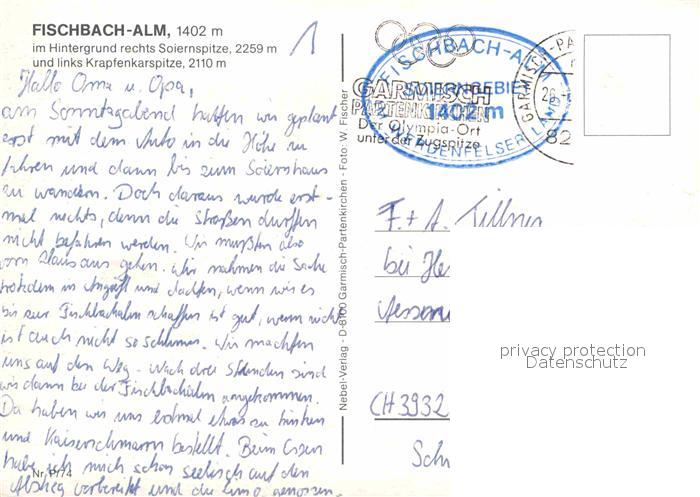 FISCHBACH-ALM, 1402 m
im Hintergrund rechts Soiernspitze, 2259 m
und links Krapfenkarspitze, 2110 m
1
Hallo Oma u. Opa,
am Sonntagabend hatten wir geplant
erst mit dem Auto in die Höhe zu
fahren und dann bis zum Soiernhaus
zu wandern. Doch daraus wurde erst-
mal nichts, denn die Straßen durften
nicht befahren werden. Wir mußten also
von Haus aus gehen. Wir nahmen die Sache
trotzdem in Angriff und dachten, wenn wir es
bis zur Fischbachalm schaffen ist gut, wenn nicht
ist auch nicht so schlimm. Wir machten
uns auf den Weg. Nach drei Stunden sind
wir dann bei der Fischbachalm angekommen.
Da haben wir uns erstmal etwas zu trinken
und Kaiserschmarrn bestellt. Beim Essen
habe ich mich schon seelisch auf den
Abstieg vorbereitet und die genossen.
Nr. P/74
Nebel-Verlag - D-8100 Garmisch-Partenkirchen - Foto: W. Fischer
FISCHBACH-ALM
SOIERNGEBIET
1402 m
WERDENFELSER LAND
GARMISCH
PARTENKIRCHEN
Der Olympia-Ort
unter der Zugspitze
GARMISCH-PA
26.
82
F. + A.
bei He
CH 3932
Sch
privacy protection
Datenschutz